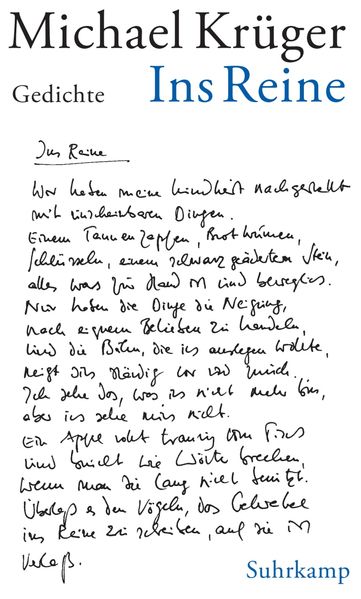 Michael Krüger
Gedichte Ins Reine
Ins Reine
Wir haben meine Kindheit nachgestellt
mit unscheinbaren Dingen.
Einem Tannenzapfen, Brotkrumen,
Schlüsseln, einem schwarz geäderten Stein,
alles was zur Hand ist und beweglich.
Nur haben die Dinge die Neigung,
nach eignem Belieben zu handeln,
und die Bahn, die ich auslegen wollte,
neigt sich ständig vor und zurück.
Ich sehe das, was ich nicht mehr bin,
aber ich sehe mich nicht.
Ein Apfel rollt traurig vom Tisch
und bricht wie Worte brechen,
wenn man sie lang nicht benützt.
Überlaß es den Vögeln, das Gekrakel
ins Reine zu schreiben, auf die ist
Verlaß.
Suhrkamp